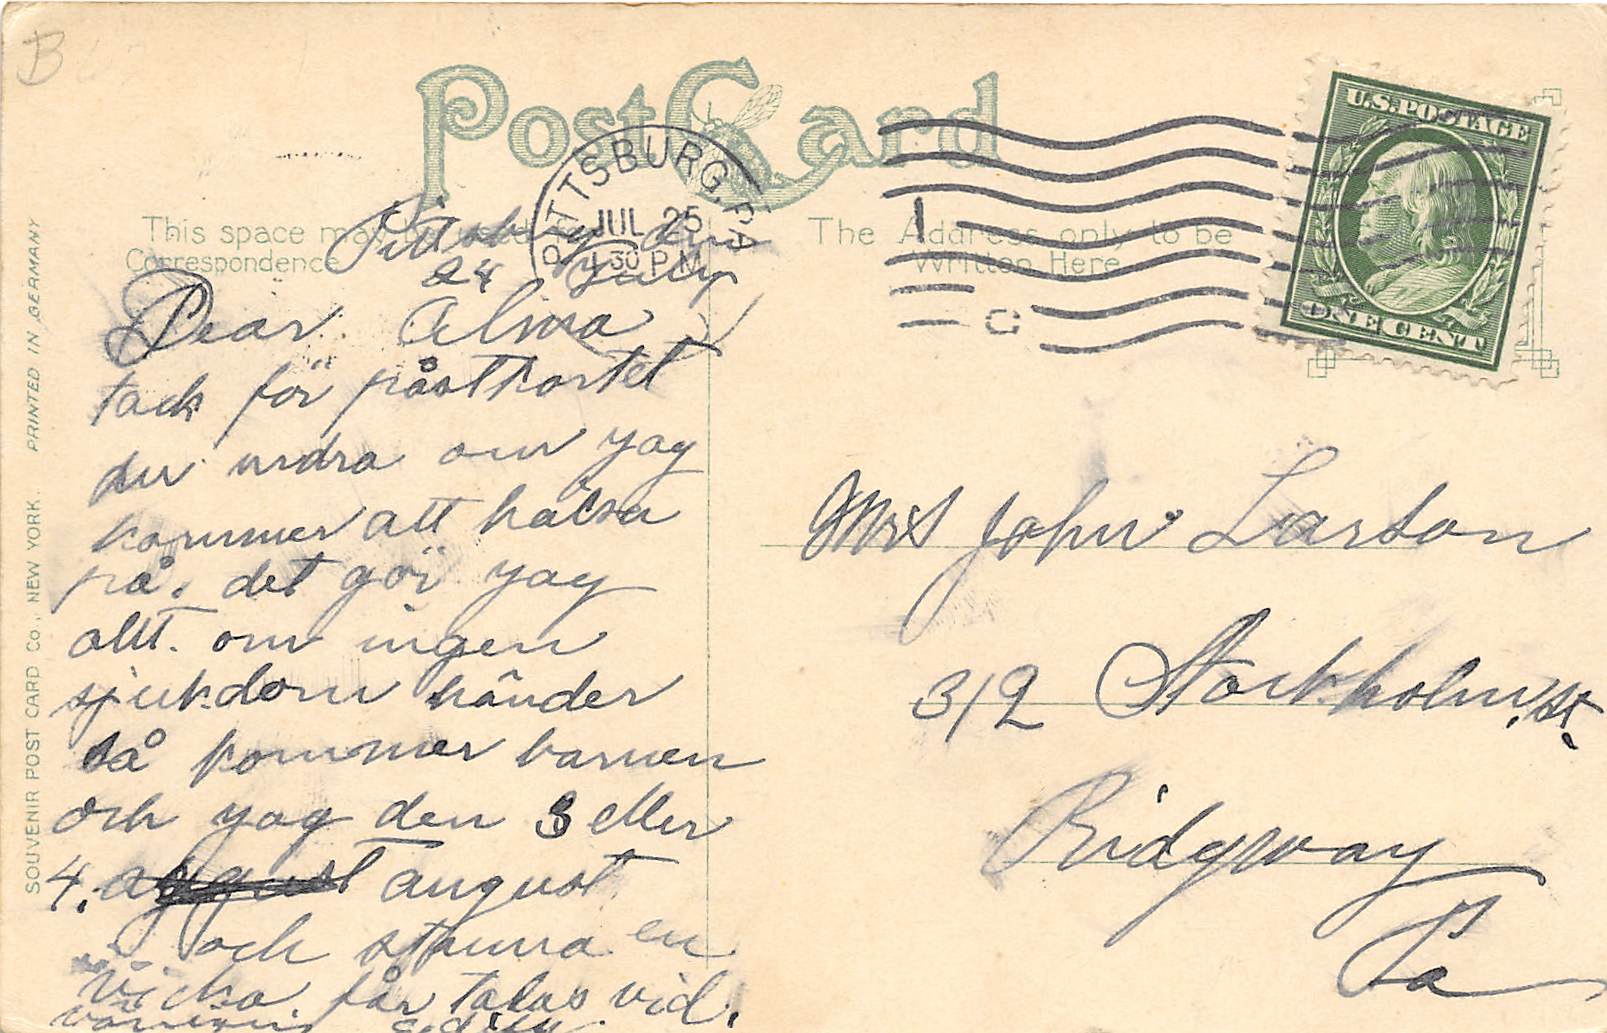 B
Post Card
This space may
Correspondence
The Address only to be
Written Here
PITTSBURG, PA
JUL 25
1 30 P.M.
U.S. POSTAGE
ONE CENT
1
C
SOUVENIR POST CARD Co., NEW YORK. PRINTED IN GERMANY
Pittsb den
24 July
Dear Alma
tack för påstkortet
du undra om yag
kommer att hälsa
på. det gör yag
allt. om ingen
sjukdom händer
så kommer barnen
och yag den 3 eller
4. august august
och stanna en
vicka får talas vid.
Mrs John Larson
312 Stockholm, st.
Ridgway
Pa